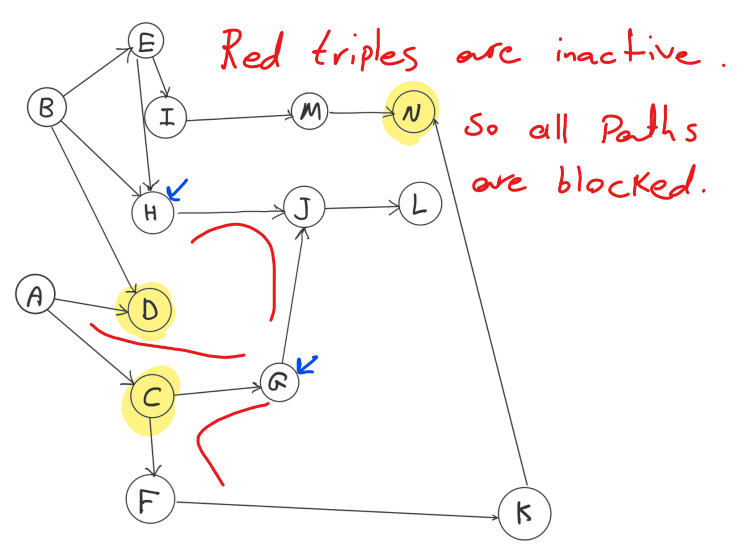 Red triples are inactive.
So all Paths
are blocked.
E
B
I
M
N
H
J
L
A
D
C
G
F
K